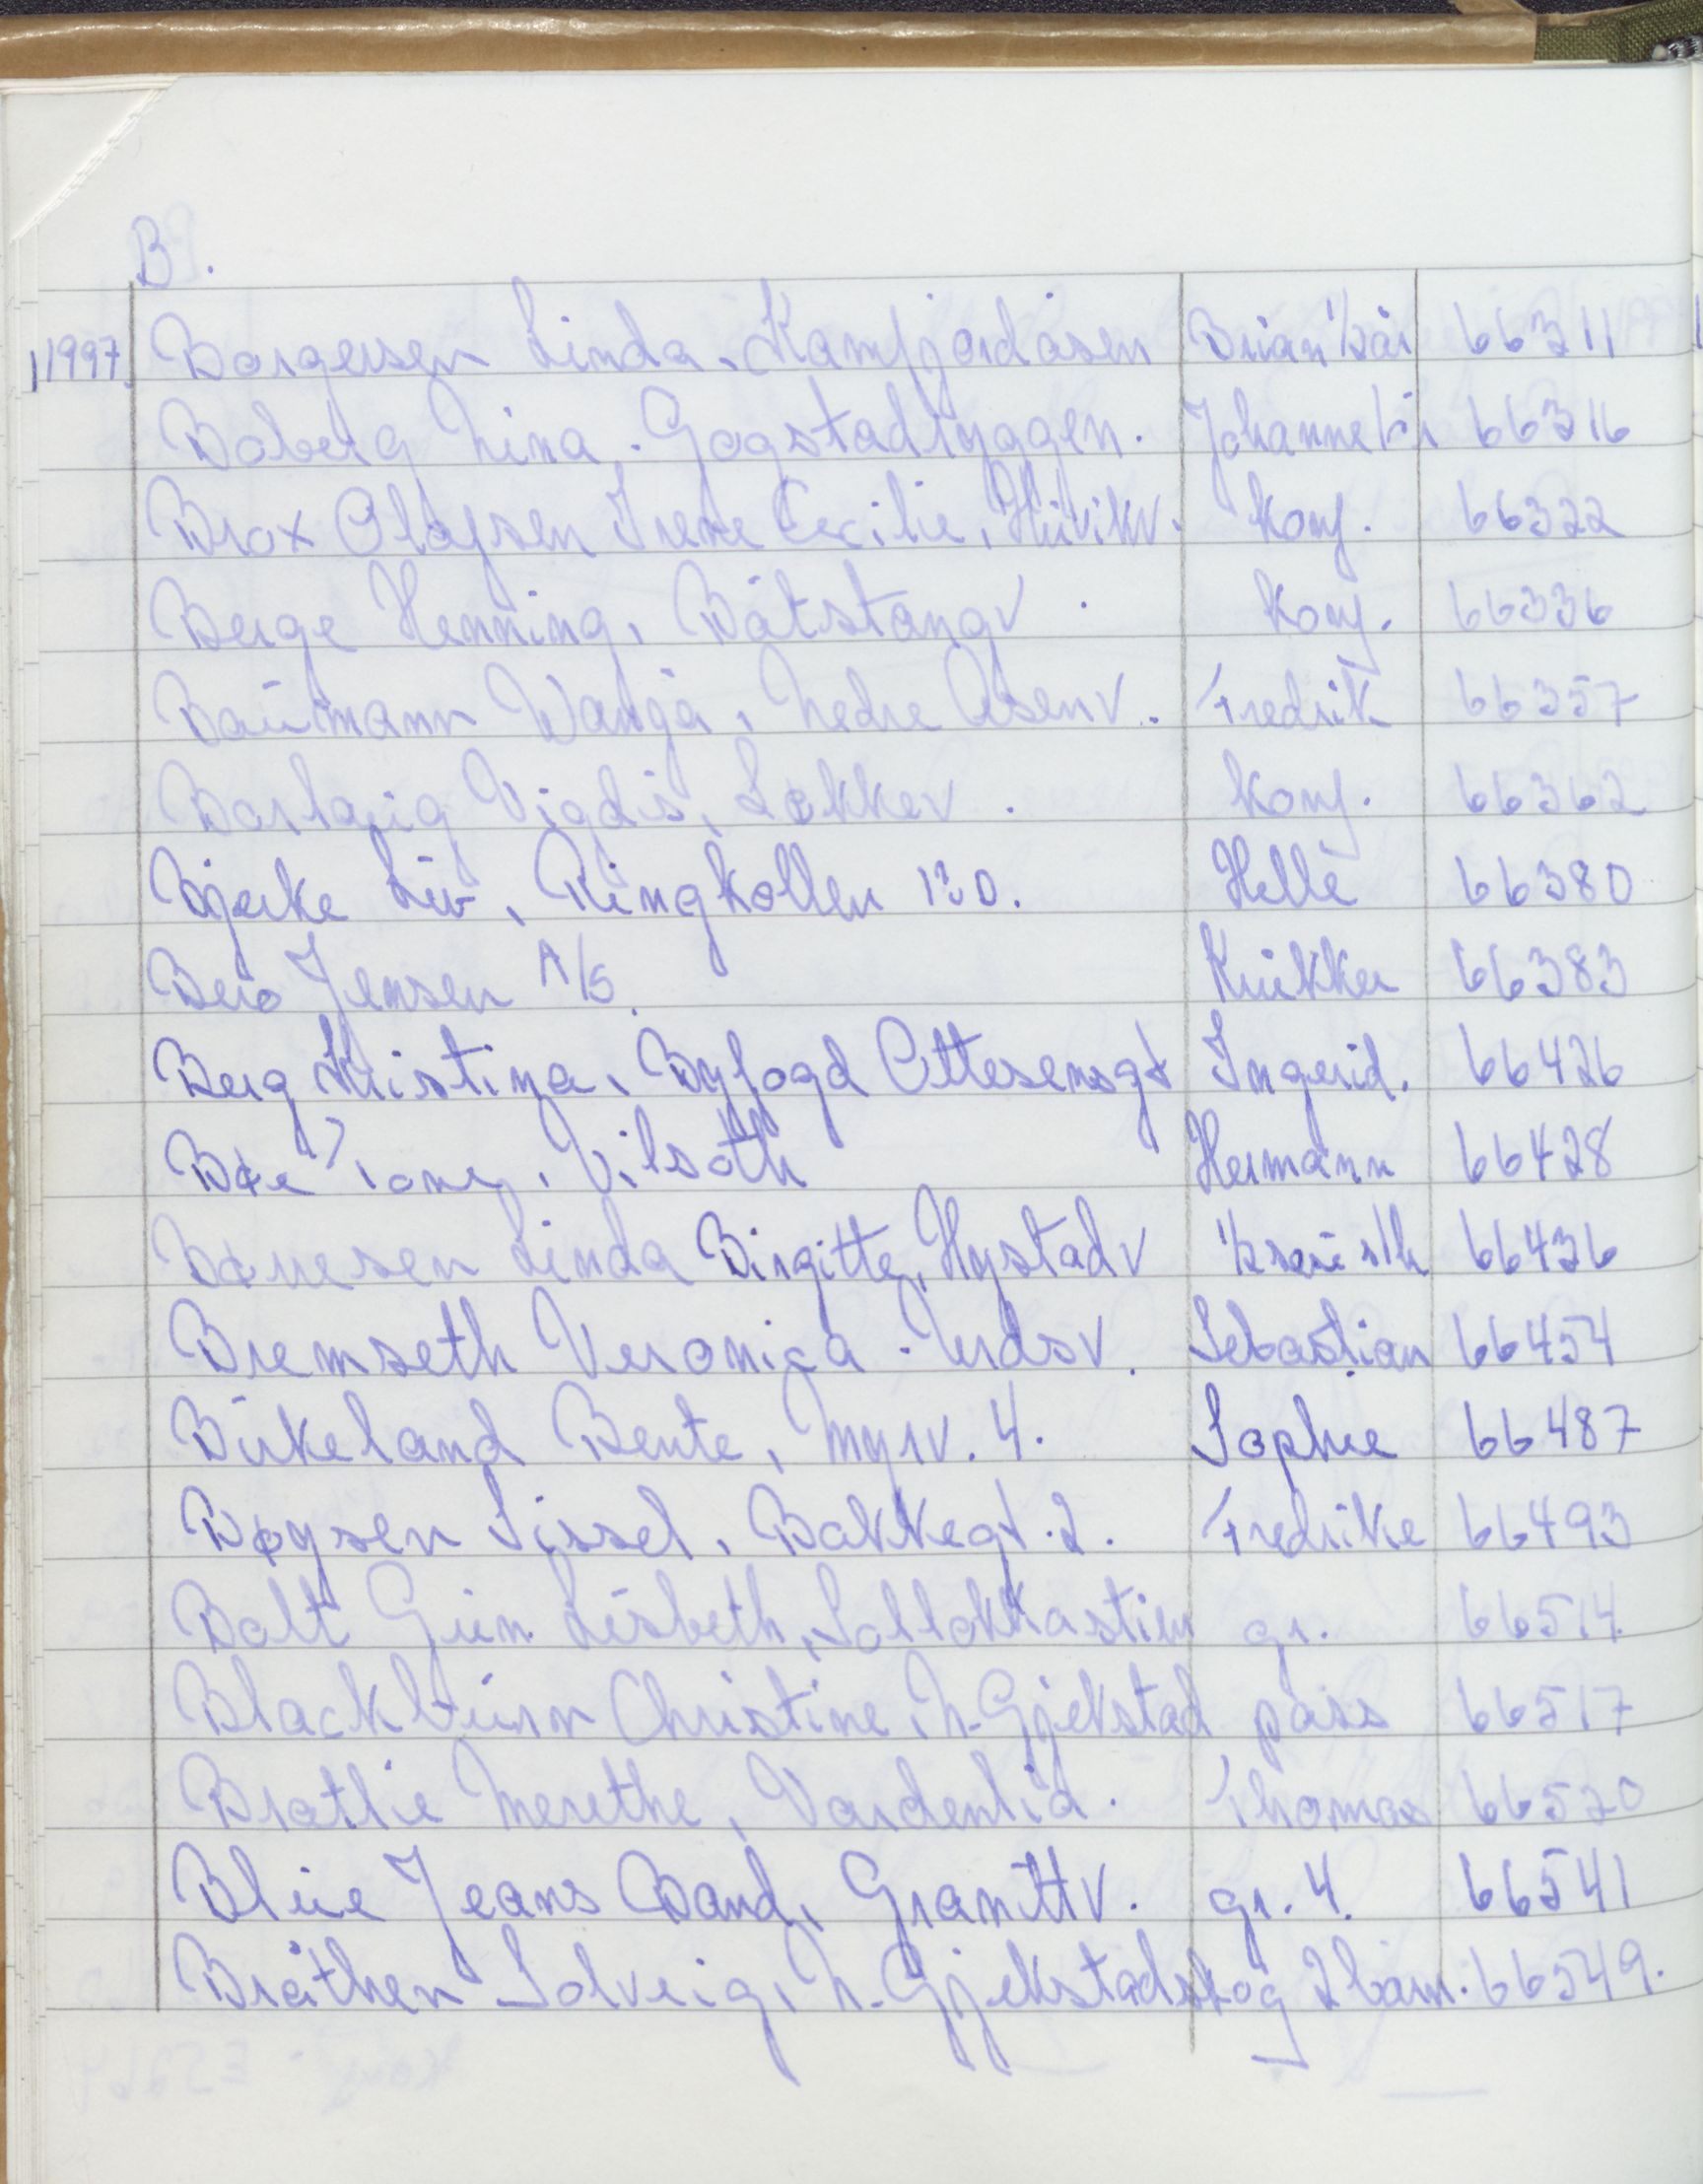 B.
1997 Borgersen Linda, Kamfjordåsen Brian 1/2 år 66311
Boberg Nina, Gogstadryggen. Johanne 66316
Brox Olafsen Irene Cecilie, Huvikv. Konf. 66322
Berge Henning, Båtstangv. Konf. 66336
Baumann Wanja, Nedre Åsenv. Fredrik 66357
Vigdis, Løkkev. Konf. 66362
Bjerke Liv, Ringkollen 120. Helle 66380
Bero Jensen A/S. Krukker 66383
Berg Kristina, Byfogd Ottesensgt Ingerid. 66426
Bøe Tone, Hermann 66428
Børresen Linda Birgitte, Nystadv 66436
Bremseth Veronica. Sebastian 66454
Birkeland Bente, Myrv. 4. Sophie 66487
Bøysen Sissel, Bakkegt. 2. Fredrike 66493
Bolt Gun Lisbeth, Solløkkastien gr. 66514
Blackburn Christine, N. Gjekstad pass 66517
Bratlie Merethe, Vardenlia. Thomas 66520
Blue Jeans Band, Granittv. gr. 4. 66541
Bråthen Solveig, N. Gjekstadskog 2 barn. 66549.